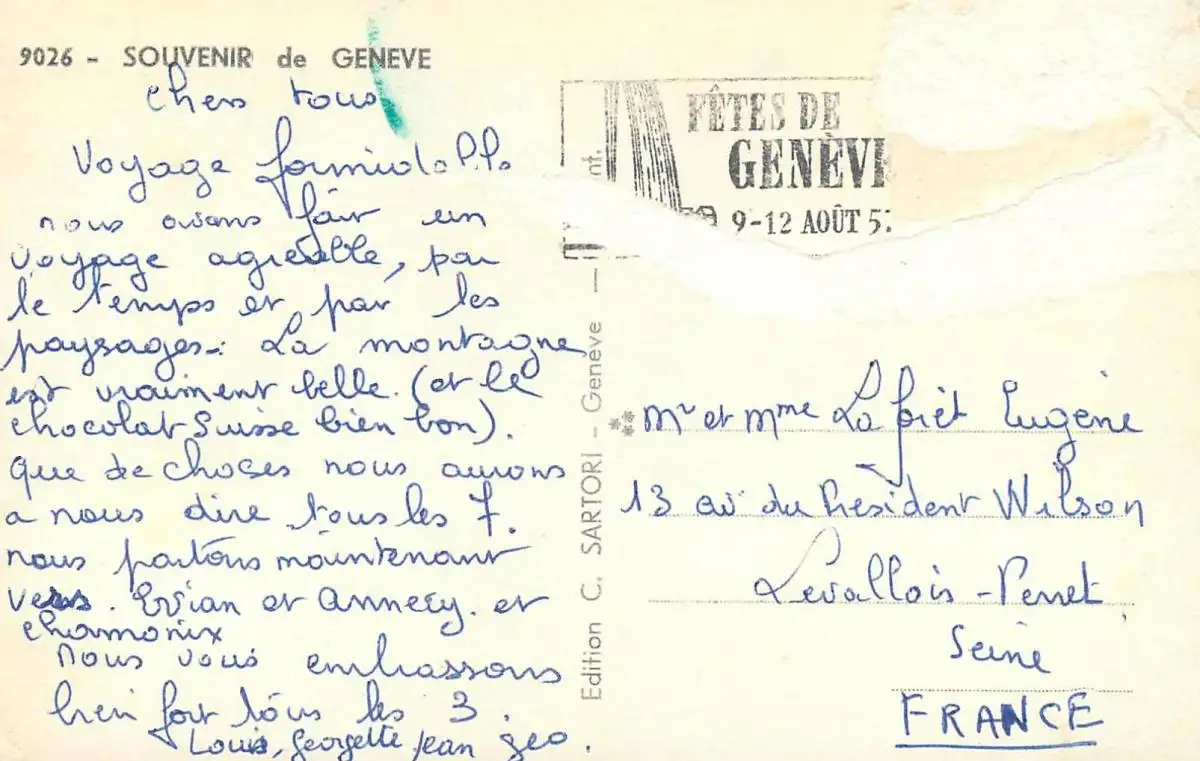 9026 - SOUVENIR de GENEVE
Chers tous
Voyage formidable
nous avons fait un
voyage agréable, par
le temps et par les
paysages. La montagne
est vraiment belle. (et le
chocolat Suisse bien bon).
Que de choses nous aurons
a nous dire tous les 7.
nous partons maintenant
vers. Evian et Annecy. et
chamonix
nous vous embrassons
bien fort tous les 3.
Louis, Georgette Jean Geo.
Edition C. SARTORI - Genève —
FÊTES DE
GENÈV
9-12 AOÛT 57
Mr et Mme Laforêt Eugène
13 av du Président Wilson
Levallois-Perret
Seine
FRANCE